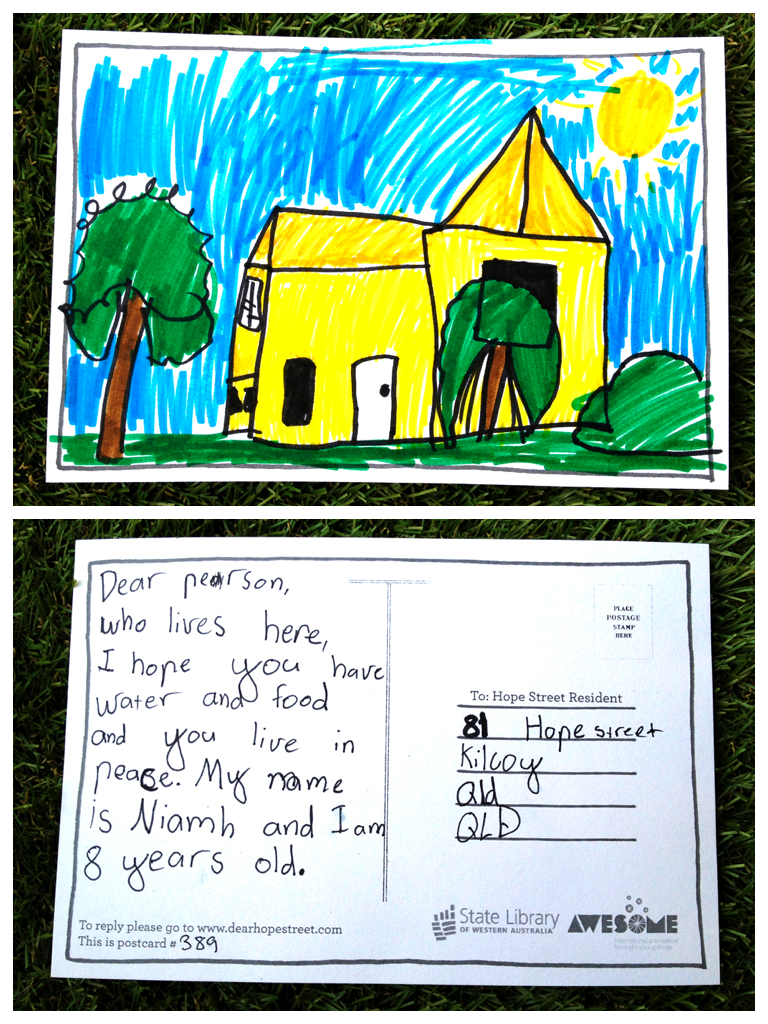 Dear pearson,
who lives here,
I hope you have
water and food
and you live in
peace. My name
is Niamh and I am
8 years old.
To reply please go to www.dearhopestreet.com
This is postcard # 389
PLACE
POSTAGE
STAMP
HERE
To: Hope Street Resident
81 Hope street
Kilcoy
Qld
QLD
State Library
OF WESTERN AUSTRALIA
AWESOME
international arts festival
for bright young things